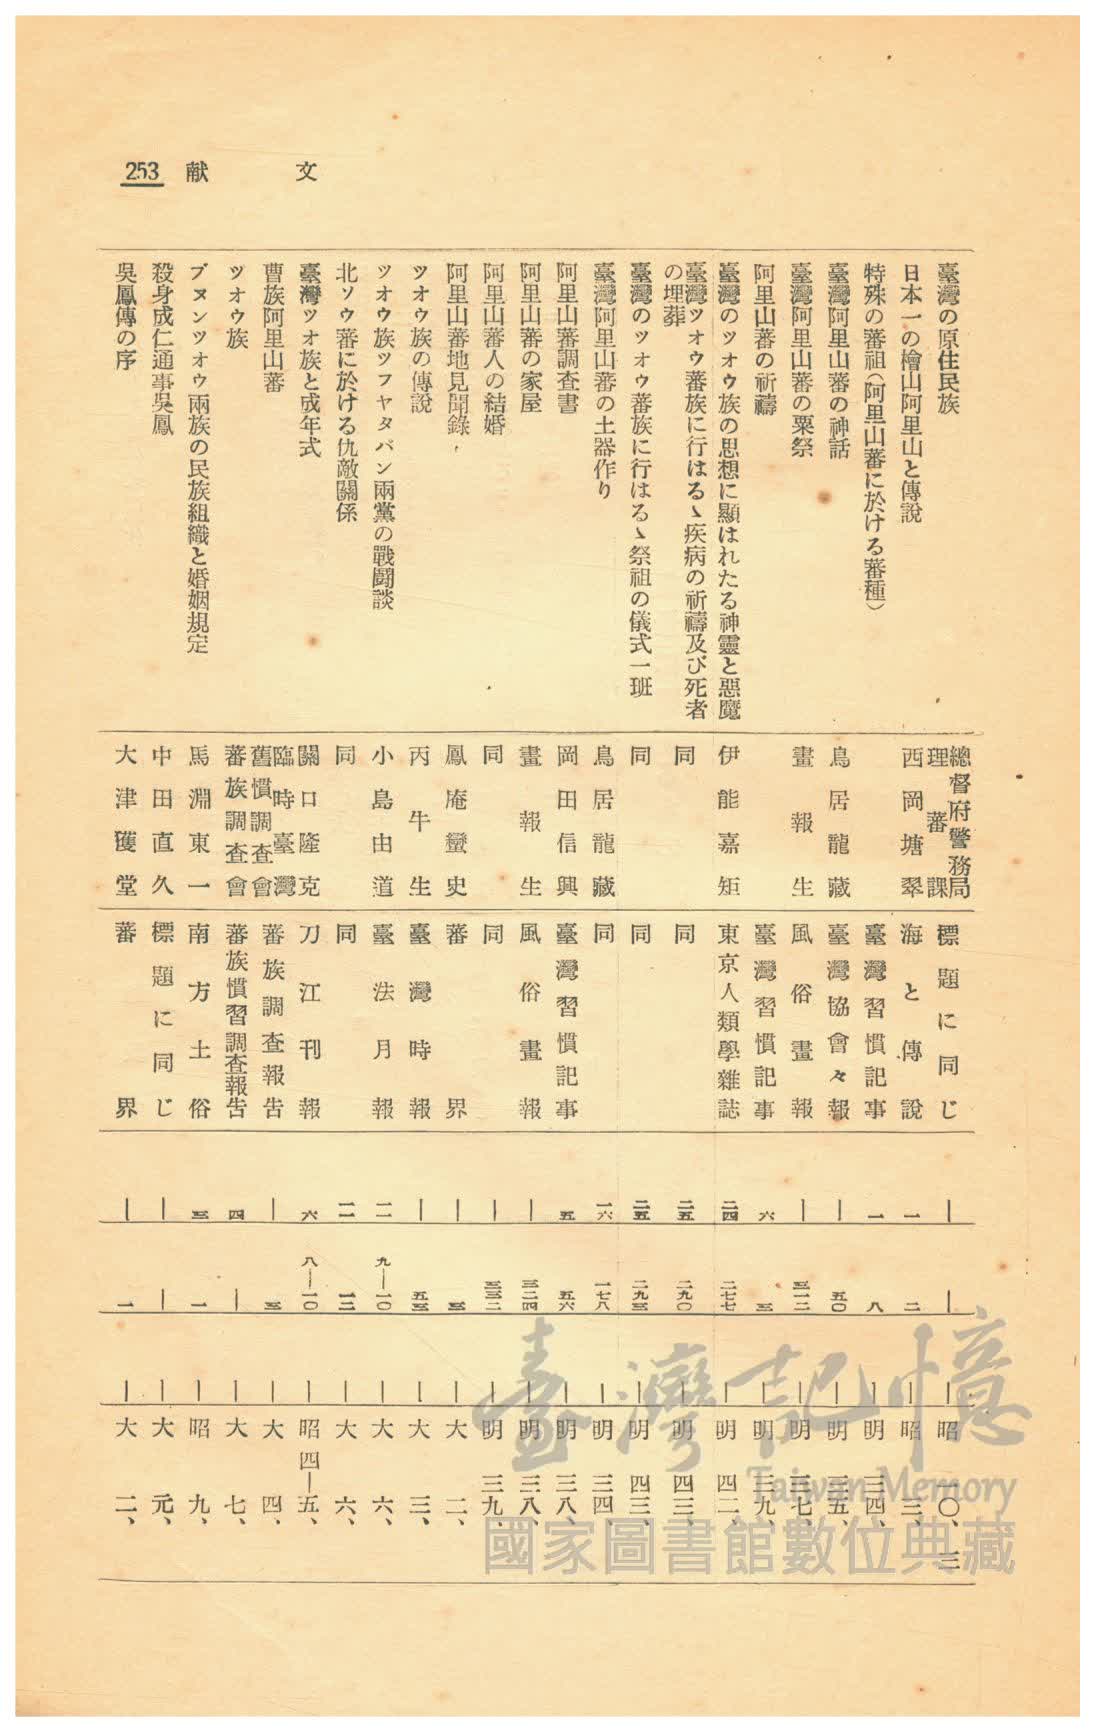 文献
253
臺灣の原住民族 總督府警務局理蕃課 標題に同じ ― ― ― 昭一〇、三
日本一の檜山阿里山と傳說 西岡塘翠 海と傳說 一 二 ― 昭三、
特殊の蕃祖(阿里山蕃に於ける蕃種) 臺灣習慣記事 一 八 ― 明三四、
臺灣阿里山蕃の神話 鳥居龍藏 臺灣協會々報 ― 五〇 ― 明三五、
臺灣阿里山蕃の粟祭 畫報生 風俗畫報 ― 三一二 ― 明三七、
阿里山蕃の祈禱 臺灣習慣記事 六 三 ― 明三九、
臺灣のツオウ族の思想に顯はれたる神靈と惡魔 伊能嘉矩 東京人類學雜誌 二四 二七七 ― 明四二、
臺灣ツオウ蕃族に行はるゝ疾病の祈禱及び死者の埋葬 同 同 二五 二九〇 ― 明四三、
臺灣のツオウ蕃族に行はるゝ祭祖の儀式一班 同 同 二五 二九三 ― 明四三、
臺灣阿里山蕃の土器作り 鳥居龍藏 同 一六 一七八 ― 明三四、
阿里山蕃調查書 岡田信興 臺灣習慣記事 五 五六 ― 明三八、
阿里山蕃の家屋 畫報生 風俗畫報 ― 三二四 ― 明三八、
阿里山蕃人の結婚 同 同 ― 三三二 ― 明三九、
阿里山蕃地見聞錄 鳳庵蠻史 蕃界 ― 三 ― 大二、
ツオウ族の傳說 丙牛生 臺灣時報 ― 五三 ― 大三、
ツオウ族ツフヤタバン兩黨の戰鬪談 小島由道 臺法月報 一一 九―一〇 ― 大六、
北ソウ蕃に於ける仇敵關係 同 同 一一 一二 ― 大六、
臺灣ツオ族と成年式 關口隆克 刀江刊報 六 八―一〇 ― 昭四―五、
曹族阿里山蕃 臨時臺灣舊慣調查會 蕃族調查報告 ― 三 ― 大四、
ツオウ族 蕃族調查會 蕃族慣習調查報告 四 ― ― 大七、
ブヌンツオウ兩族の民族組織と婚姻規定 馬淵東一 南方土俗 三 一 ― 昭九、
殺身成仁通事吳鳳 中田直久 標題に同じ ― ― ― 大元、
吳鳳傳の序 大津獲堂 蕃界 ― 一 ― 大二、
臺灣記憶
Taiwan Memory
國家圖書館數位典藏